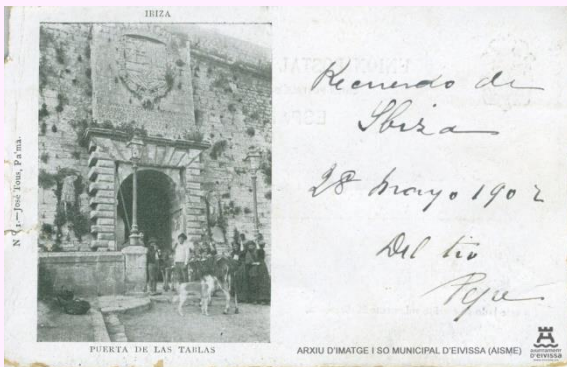 IBIZA
Nº 1.—José Tous, Palma.
PUERTA DE LAS TABLAS
Recuerdo de
Ibiza
28 Mayo 1902
Del tio
Pepe
ARXIU D'IMATGE I SO MUNICIPAL D'EIVISSA (AISME)
ajuntament
D'EIVISSA